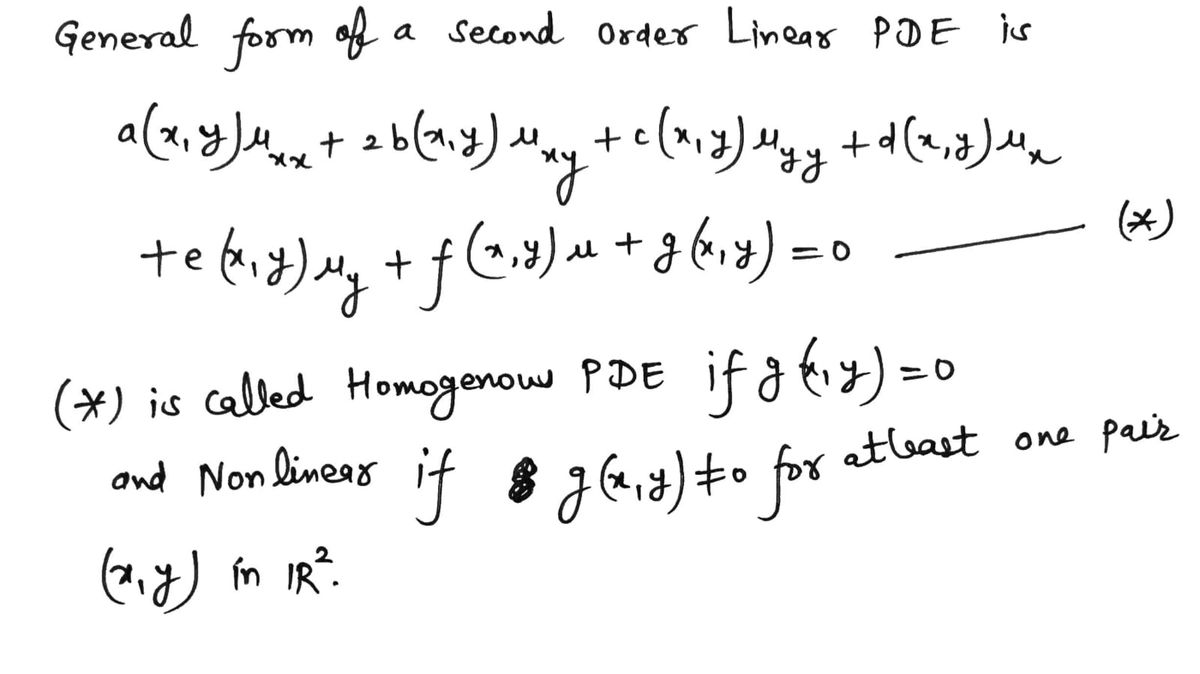 General form of a second order Linear PDE is
a(x,y)u_xx + 2b(x,y) u_xy + c(x,y) u_yy + d(x,y) u_x
+e(x,y) u_y + f(x,y) u + g(x,y) = 0 ——— (*)
(*) is called Homogenous PDE if g(x,y) = 0
and Non linear if g(x,y) ≠ 0 for atleast one pair
(x,y) in IR².